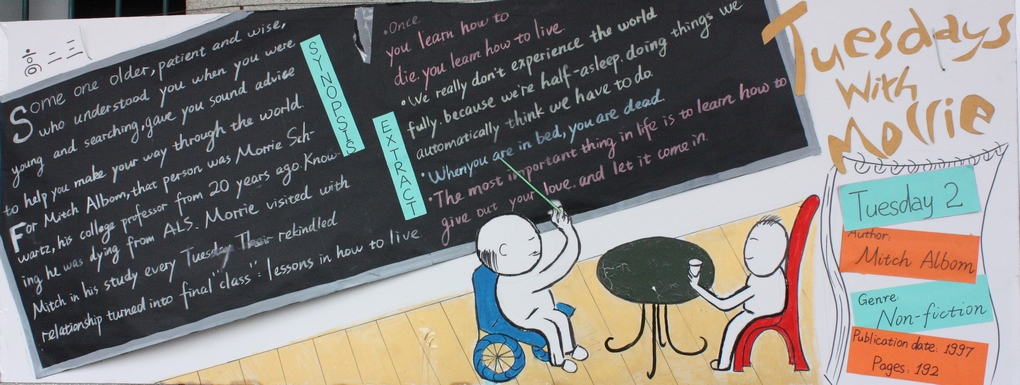 Some one older, patient and wise,
who understood you when you were
young and searching, gave you sound advice
to help you make your way through the world.
For Mitch Albom, that person was Morrie Sch-
wartz, his college professor from 20 years ago. Know-
ing he was dying from ALS. Morrie visited with
Mitch in his study every Tuesday Their rekindled
relationship turned into final "class": lessons in how to live
SYNOPSIS
EXTRACT
•Once
you learn how to
die. you learn how to live.
•We really don't experience the world
fully. because we're half-asleep. doing things we
automatically think we have to do.
•When you are in bed, you are dead.
•The most important thing in life is to learn how to
give out your love. and let it come in.
Tuesdays
With
Mollie
Tuesday 2
Author:
Mitch Albom
Genre
Non-fiction
Publication date: 1997
Pages: 192